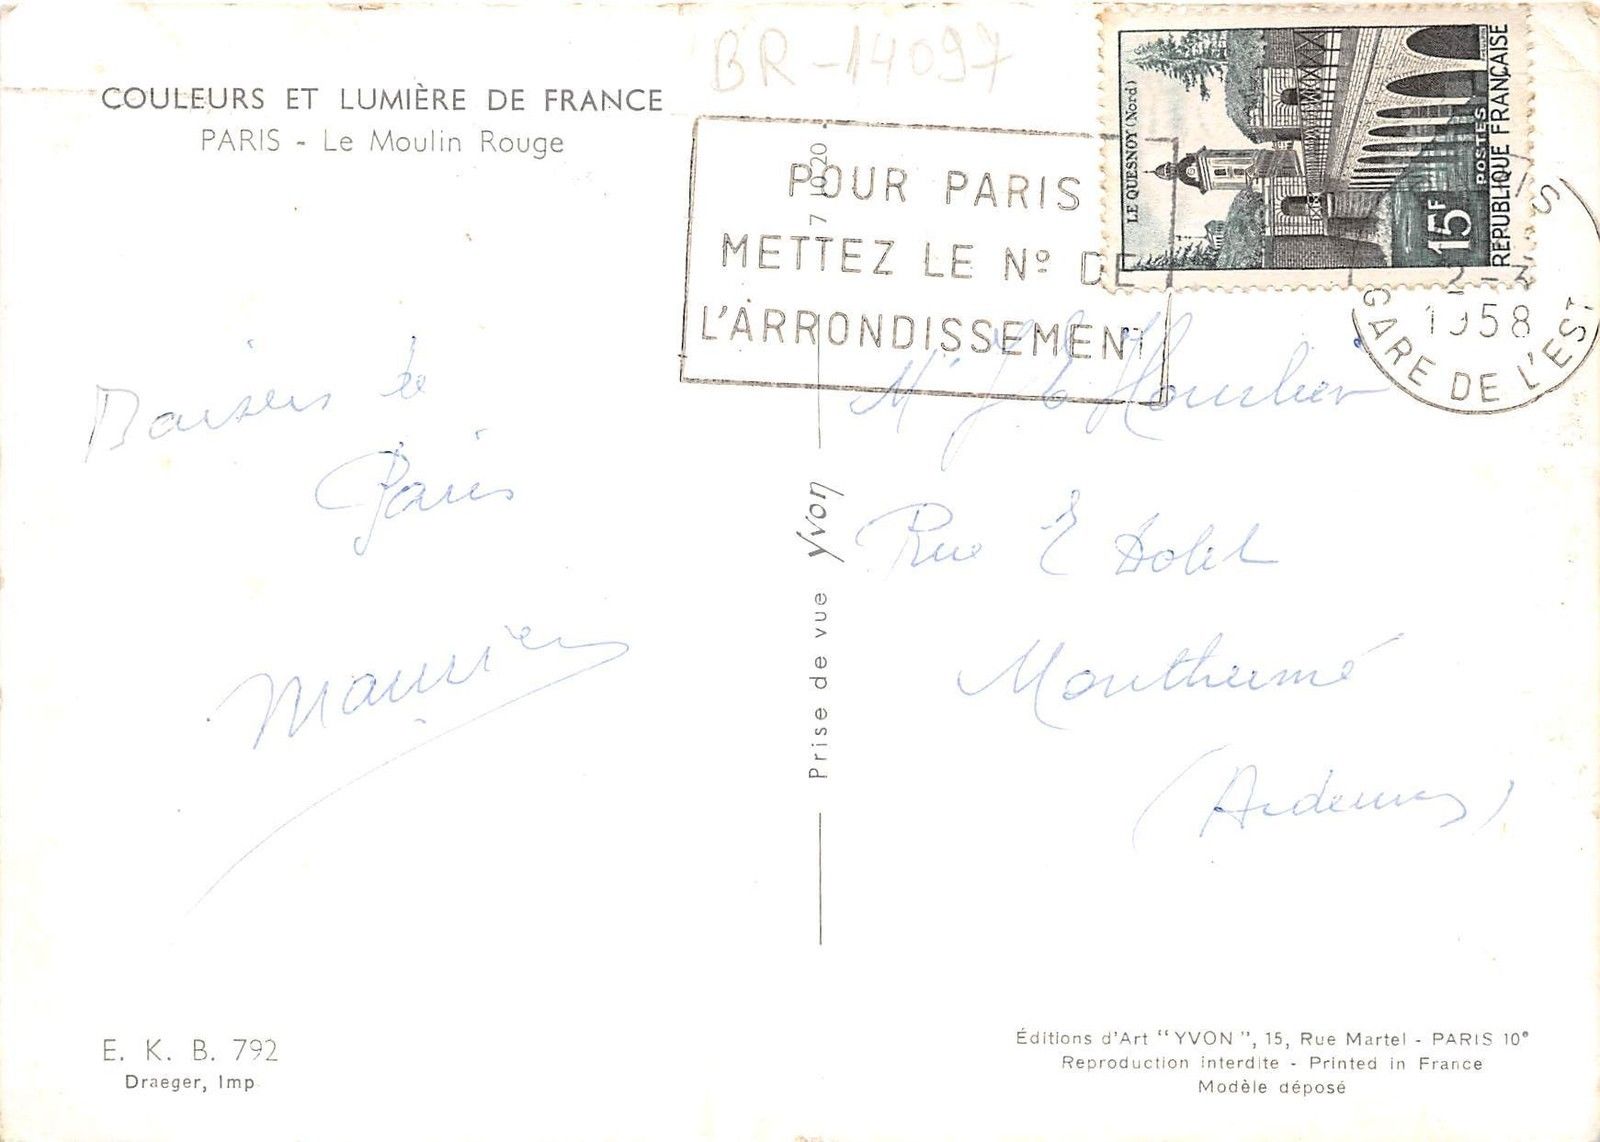 BR-14097
COULEURS ET LUMIÈRE DE FRANCE
PARIS - Le Moulin Rouge
POUR PARIS
METTEZ LE Nº DE
L'ARRONDISSEMENT
LE QUESNOY (Nord)
15F
POSTES
RÉPUBLIQUE FRANÇAISE
1958
GARE DE L'EST
Baisers de
Paris
Prise de vue Yvon
Rue E Dolet
Monthermé
(Ardennes)
E. K. B. 792
Draeger, Imp
Éditions d'Art "YVON", 15, Rue Martel - PARIS 10e
Reproduction interdite - Printed in France
Modèle déposé